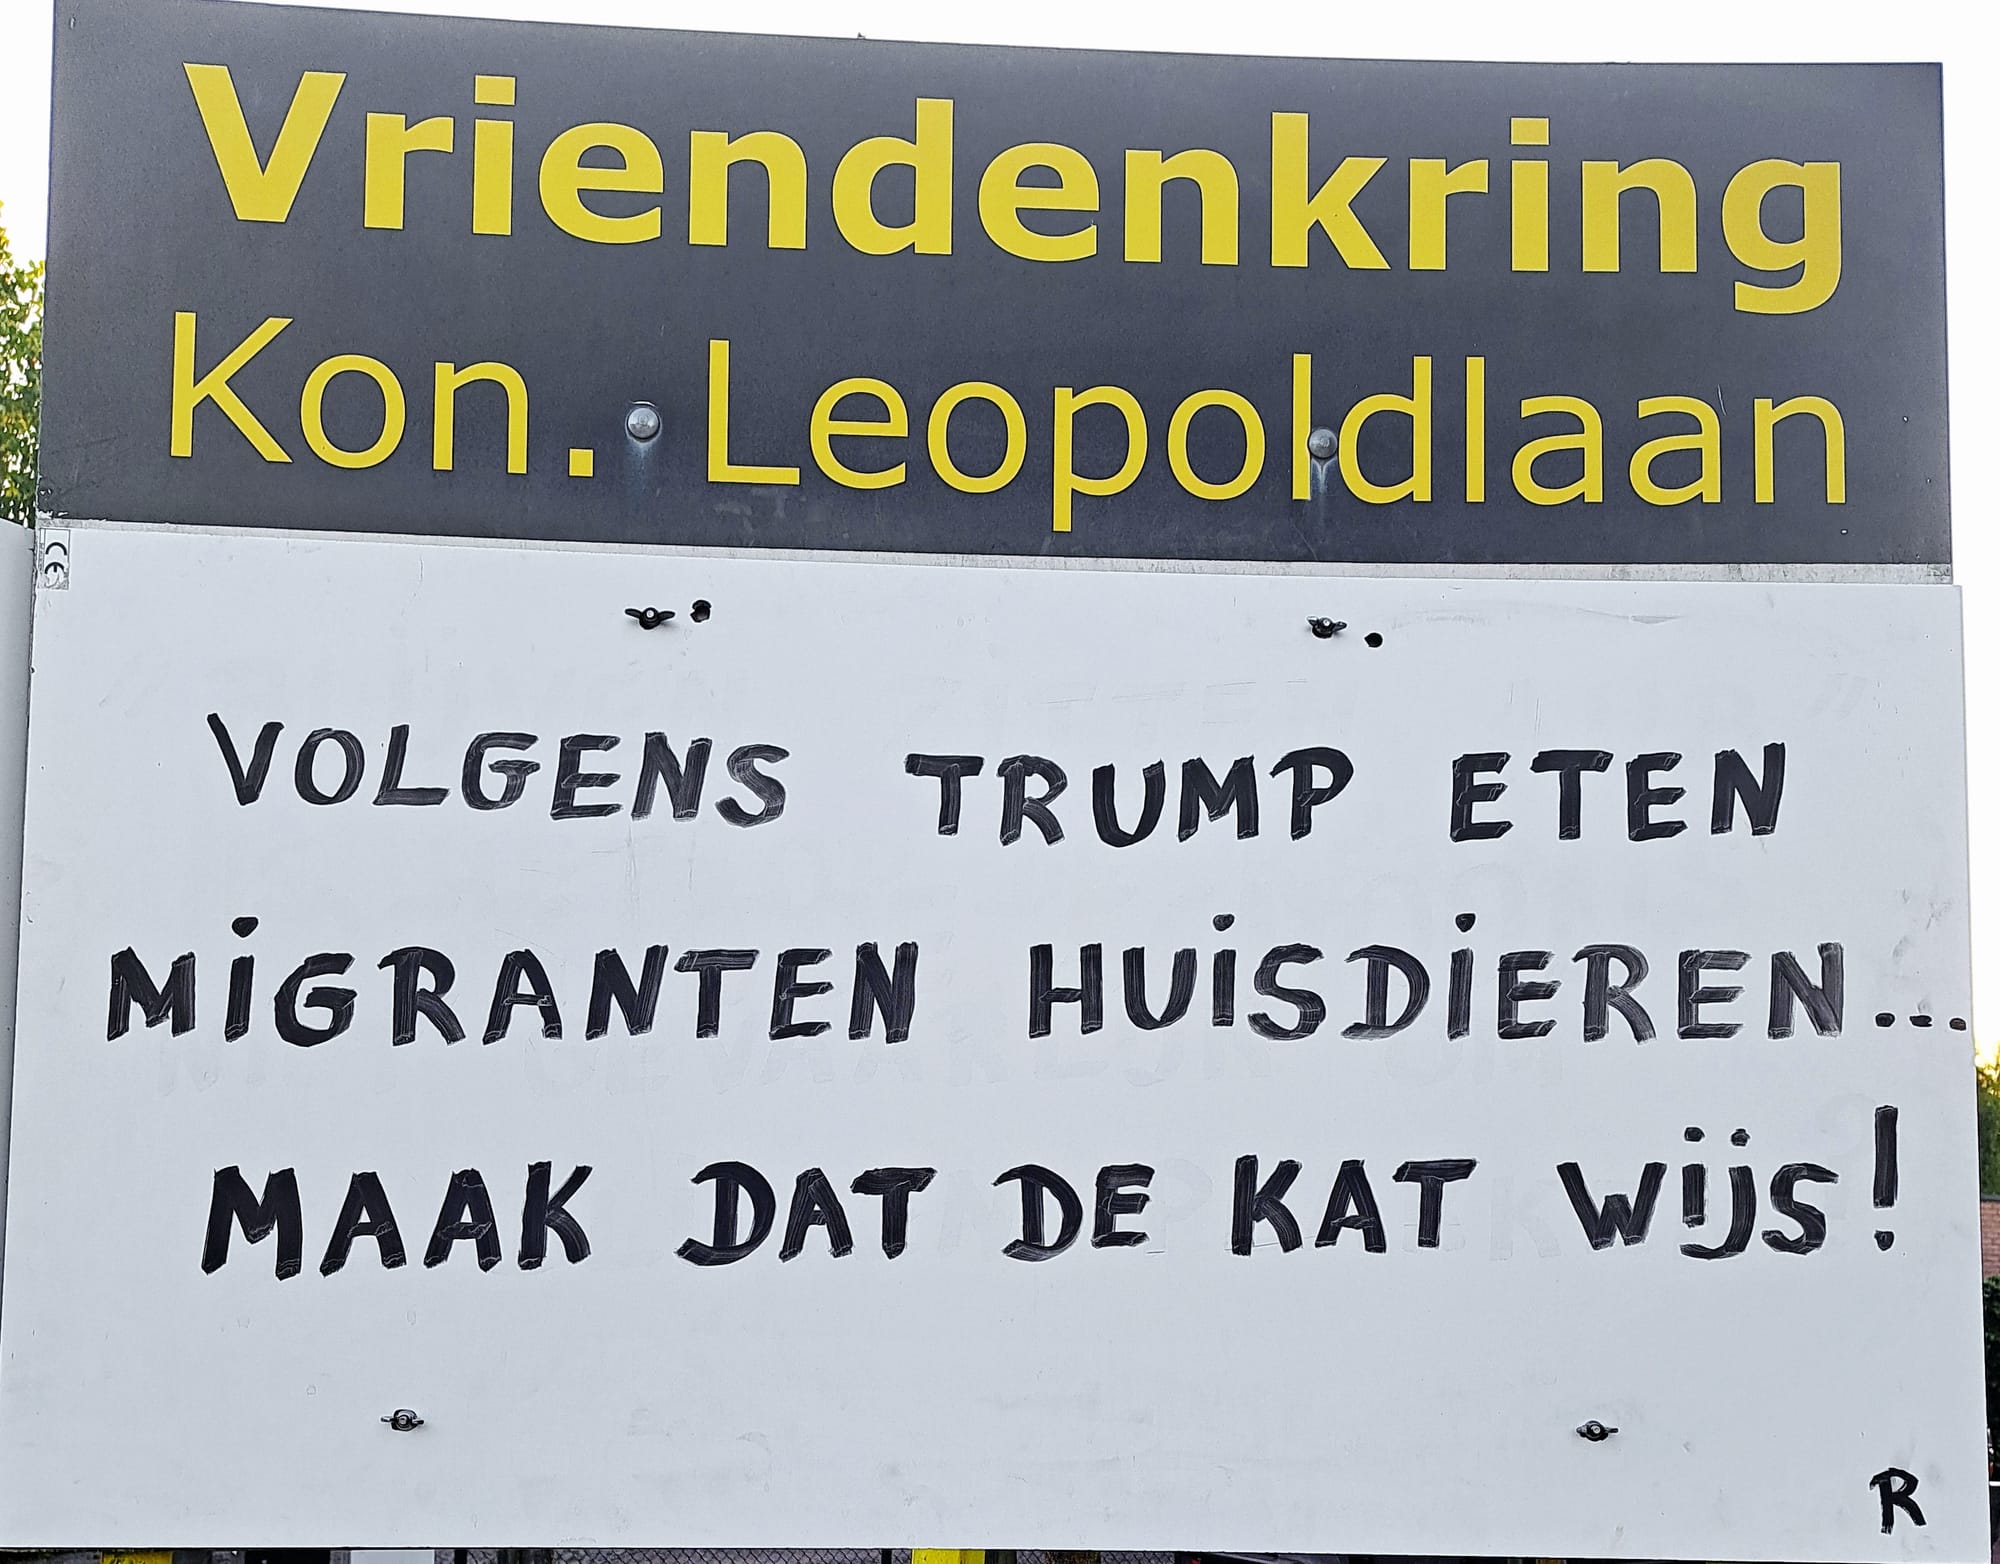 Vriendenkring
Kon. Leopoldlaan
CE
VOLGENS TRUMP ETEN
MIGRANTEN HUISDIEREN...
MAAK DAT DE KAT WIJS!
R